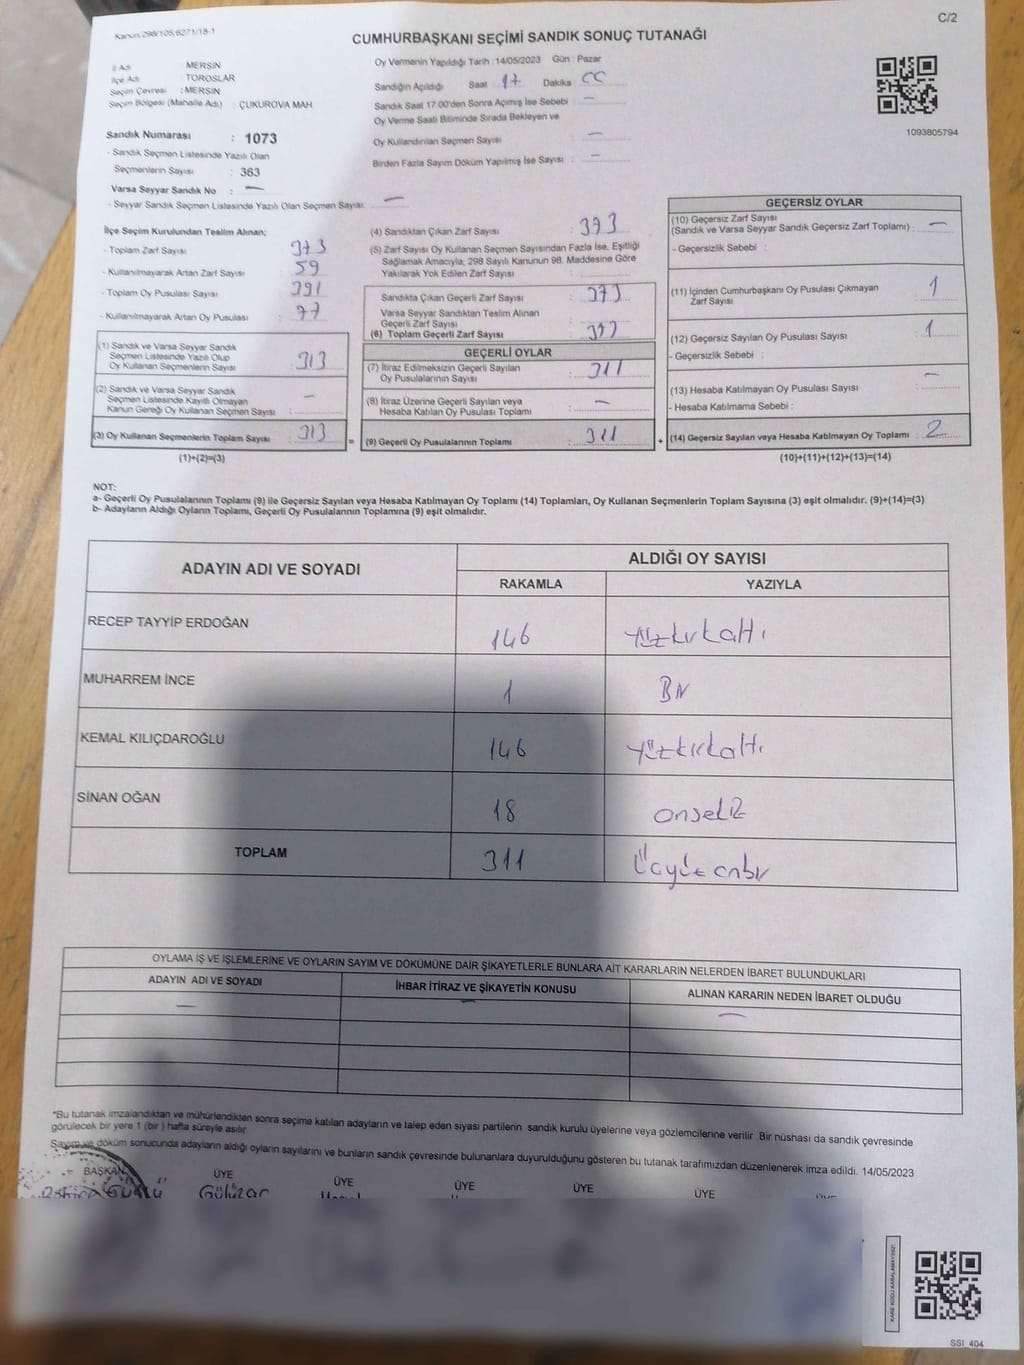 C/2
Kanun:298/105,6271/18-1
CUMHURBAŞKANI SEÇİMİ SANDIK SONUÇ TUTANAĞI
İl Adı : MERSİN
İlçe Adı TOROSLAR
Seçim Çevresi : MERSİN
Seçim Bölgesi (Mahalle Adı) : ÇUKUROVA MAH
Sandık Numarası : 1073
- Sandık Seçmen Listesinde Yazılı Olan
Seçmenlerin Sayısı : 363
Varsa Seyyar Sandık No : —
- Seyyar Sandık Seçmen Listesinde Yazılı Olan Seçmen Sayısı: —
Oy Vermenin Yapıldığı Tarih :14/05/2023 Gün : Pazar
Sandığın Açıldığı Saat 17 Dakika 00
Sandık Saat 17:00'den Sonra Açımış İse Sebebi : —
Oy Verme Saati Bitiminde Sırada Bekleyen ve
Oy Kullandırılan Seçmen Sayısı : —
Birden Fazla Sayım Döküm Yapılmış İse Sayısı : —
1093805794
İlçe Seçim Kurulundan Teslim Alınan;
- Toplam Zarf Sayısı : 373
- Kullanılmayarak Artan Zarf Sayısı : 59
- Toplam Oy Pusulası Sayısı : 391
- Kullanılmayarak Artan Oy Pusulası : 77
(1) Sandık ve Varsa Seyyar Sandık
Seçmen Listesinde Yazılı Olup
Oy Kullanan Seçmenlerin Sayısı : 313
(2) Sandık ve Varsa Seyyar Sandık
Seçmen Listesinde Kayıtlı Olmayan
Kanun Gereği Oy Kullanan Seçmen Sayısı : —
(3) Oy Kullanan Seçmenlerin Toplam Sayısı : 313
(1)+(2)=(3)
(4) Sandıktan Çıkan Zarf Sayısı : 313
(5) Zarf Sayısı Oy Kullanan Seçmen Sayısından Fazla İse, Eşitliği
Sağlamak Amacıyla; 298 Sayılı Kanunun 98. Maddesine Göre
Yakılarak Yok Edilen Zarf Sayısı :
Sandıkta Çıkan Geçerli Zarf Sayısı : 313
Varsa Seyyar Sandıktan Teslim Alınan
Geçerli Zarf Sayısı :
(6) Toplam Geçerli Zarf Sayısı : 313
GEÇERLİ OYLAR
(7) İtiraz Edilmeksizin Geçerli Sayılan
Oy Pusulalarının Sayısı : 311
(8) İtiraz Üzerine Geçerli Sayılan veya
Hesaba Katılan Oy Pusulası Toplamı : —
= (9) Geçerli Oy Pusulalarının Toplamı : 311
GEÇERSİZ OYLAR
(10) Geçersiz Zarf Sayısı
(Sandık ve Varsa Seyyar Sandık Geçersiz Zarf Toplamı) : —
- Geçersizlik Sebebi :
(11) İçinden Cumhurbaşkanı Oy Pusulası Çıkmayan
Zarf Sayısı : 1
(12) Geçersiz Sayılan Oy Pusulası Sayısı : 1
- Geçersizlik Sebebi :
(13) Hesaba Katılmayan Oy Pusulası Sayısı : —
- Hesaba Katılmama Sebebi :
+ (14) Geçersiz Sayılan veya Hesaba Katılmayan Oy Toplamı : 2
(10)+(11)+(12)+(13)=(14)
NOT:
a- Geçerli Oy Pusulalarının Toplamı (9) ile Geçersiz Sayılan veya Hesaba Katılmayan Oy Toplamı (14) Toplamları, Oy Kullanan Seçmenlerin Toplam Sayısına (3) eşit olmalıdır. (9)+(14)=(3)
b- Adayların Aldığı Oyların Toplamı, Geçerli Oy Pusulalarının Toplamına (9) eşit olmalıdır.
ADAYIN ADI VE SOYADI
ALDIĞI OY SAYISI
RAKAMLA YAZIYLA
RECEP TAYYİP ERDOĞAN 146 yüzkırkaltı
MUHARREM İNCE 1 BİR
KEMAL KILIÇDAROĞLU 146 yüzkırkaltı
SİNAN OĞAN 18 onsekiz
TOPLAM 311 Üçyüz onbir
OYLAMA İŞ VE İŞLEMLERİNE VE OYLARIN SAYIM VE DÖKÜMÜNE DAİR ŞİKAYETLERLE BUNLARA AİT KARARLARIN NELERDEN İBARET BULUNDUKLARI
ADAYIN ADI VE SOYADI İHBAR İTİRAZ VE ŞİKAYETİN KONUSU ALINAN KARARIN NEDEN İBARET OLDUĞU
— — —
*Bu tutanak imzalandıktan ve mühürlendikten sonra seçime katılan adayların ve talep eden siyasi partilerin sandık kurulu üyelerine veya gözlemcilerine verilir. Bir nüshası da sandık çevresinde
görülecek bir yere 1 (bir ) hafta süreyle asılır.
Sayım ve döküm sonucunda adayların aldığı oyların sayılarını ve bunların sandık çevresinde bulunanlara duyurulduğunu gösteren bu tutanak tarafımızdan düzenlenerek imza edildi. 14/05/2023
BAŞKAN ÜYE ÜYE ÜYE ÜYE ÜYE
Gülüzar
KARE KODU KARALAMAYINIZ!
SSI_404